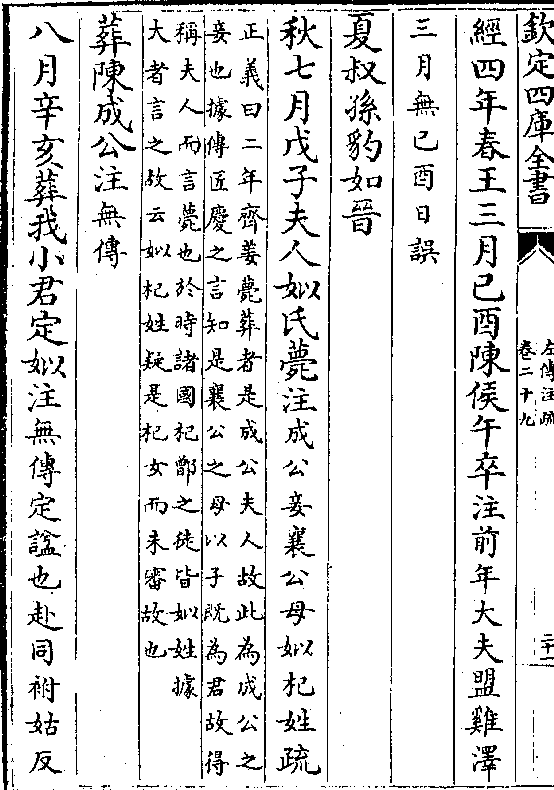 欽定四庫全書
左傳注疏
卷二十九
二十一
經四年春王三月己酉陳侯午卒注前年大夫盟雞澤
三月無己酉日誤
夏叔孫豹如晉
秋七月戊子夫人姒氏薨注成公妾襄公母姒杞姓疏
正義曰二年齊姜薨葬者是成公夫人故此為成公之
妾也據傳匠慶之言知是襄公之母以子既為君故得
稱夫人而言薨也於時諸國杞鄫之徒皆姒姓據
大者言之故云姒杞姓疑是杞女而未審故也
葬陳成公注無傳
八月辛亥葬我小君定姒注無傳定諡也赴同祔姑反